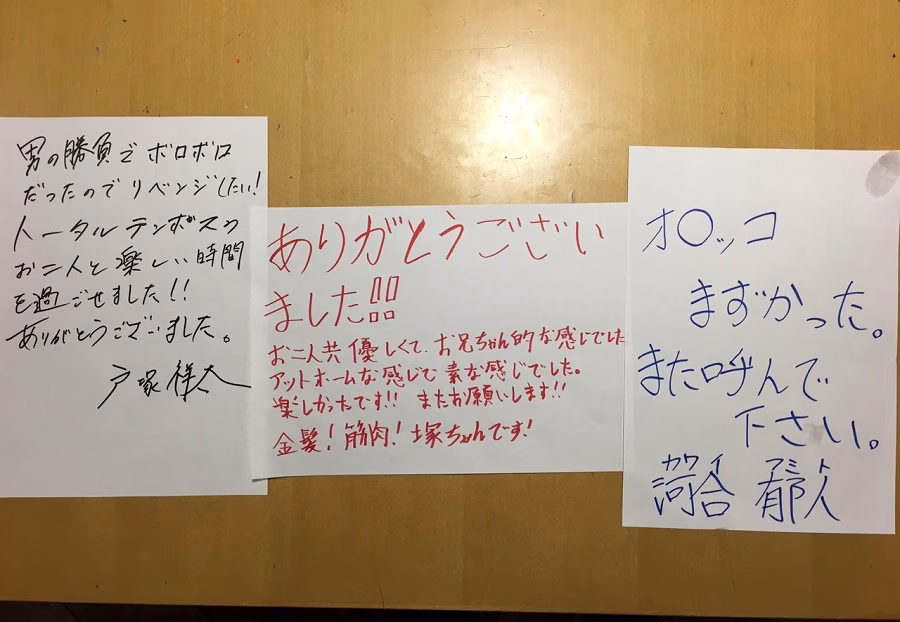 男の勝負でボロボロ
だったのでリベンジしたい!
トータルテンボスの
お二人と楽しい時間
を過ごせました!!
ありがとうございました。
戸塚祥太
ありがとうござい
ました!!
お二人共優しくて、お兄ちゃん的な感じでした
アットホームな感じで素な感じでした。
楽しかったです!! またお願いします!!
金髪!筋肉!塚ちゃんです!
オ〇ッコ
まずかった。
また呼んで
下さい。
カワイ フミト
河合 郁人